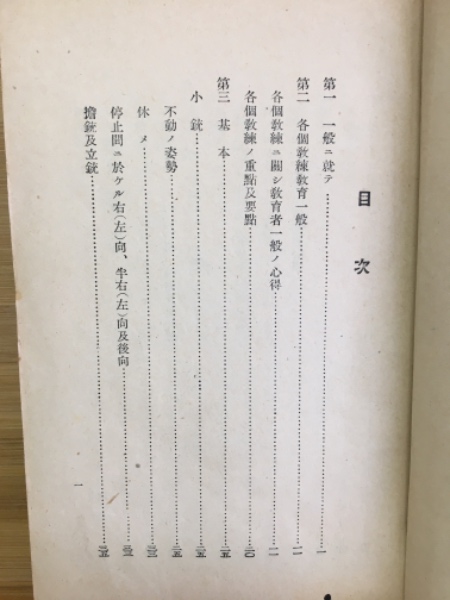 目次
第一 一般ニ就テ……一
第二 各個敎練敎育一般……一一
各個敎練ニ關シ敎育者一般ノ心得……一一
各個敎練ノ重點及要點……二〇
第三 基本……二五
小銃……二五
不動ノ姿勢……二五
休メ……三三
停止間ニ於ケル右(左)向、半右(左)向及後向
擔銃及立銃
一